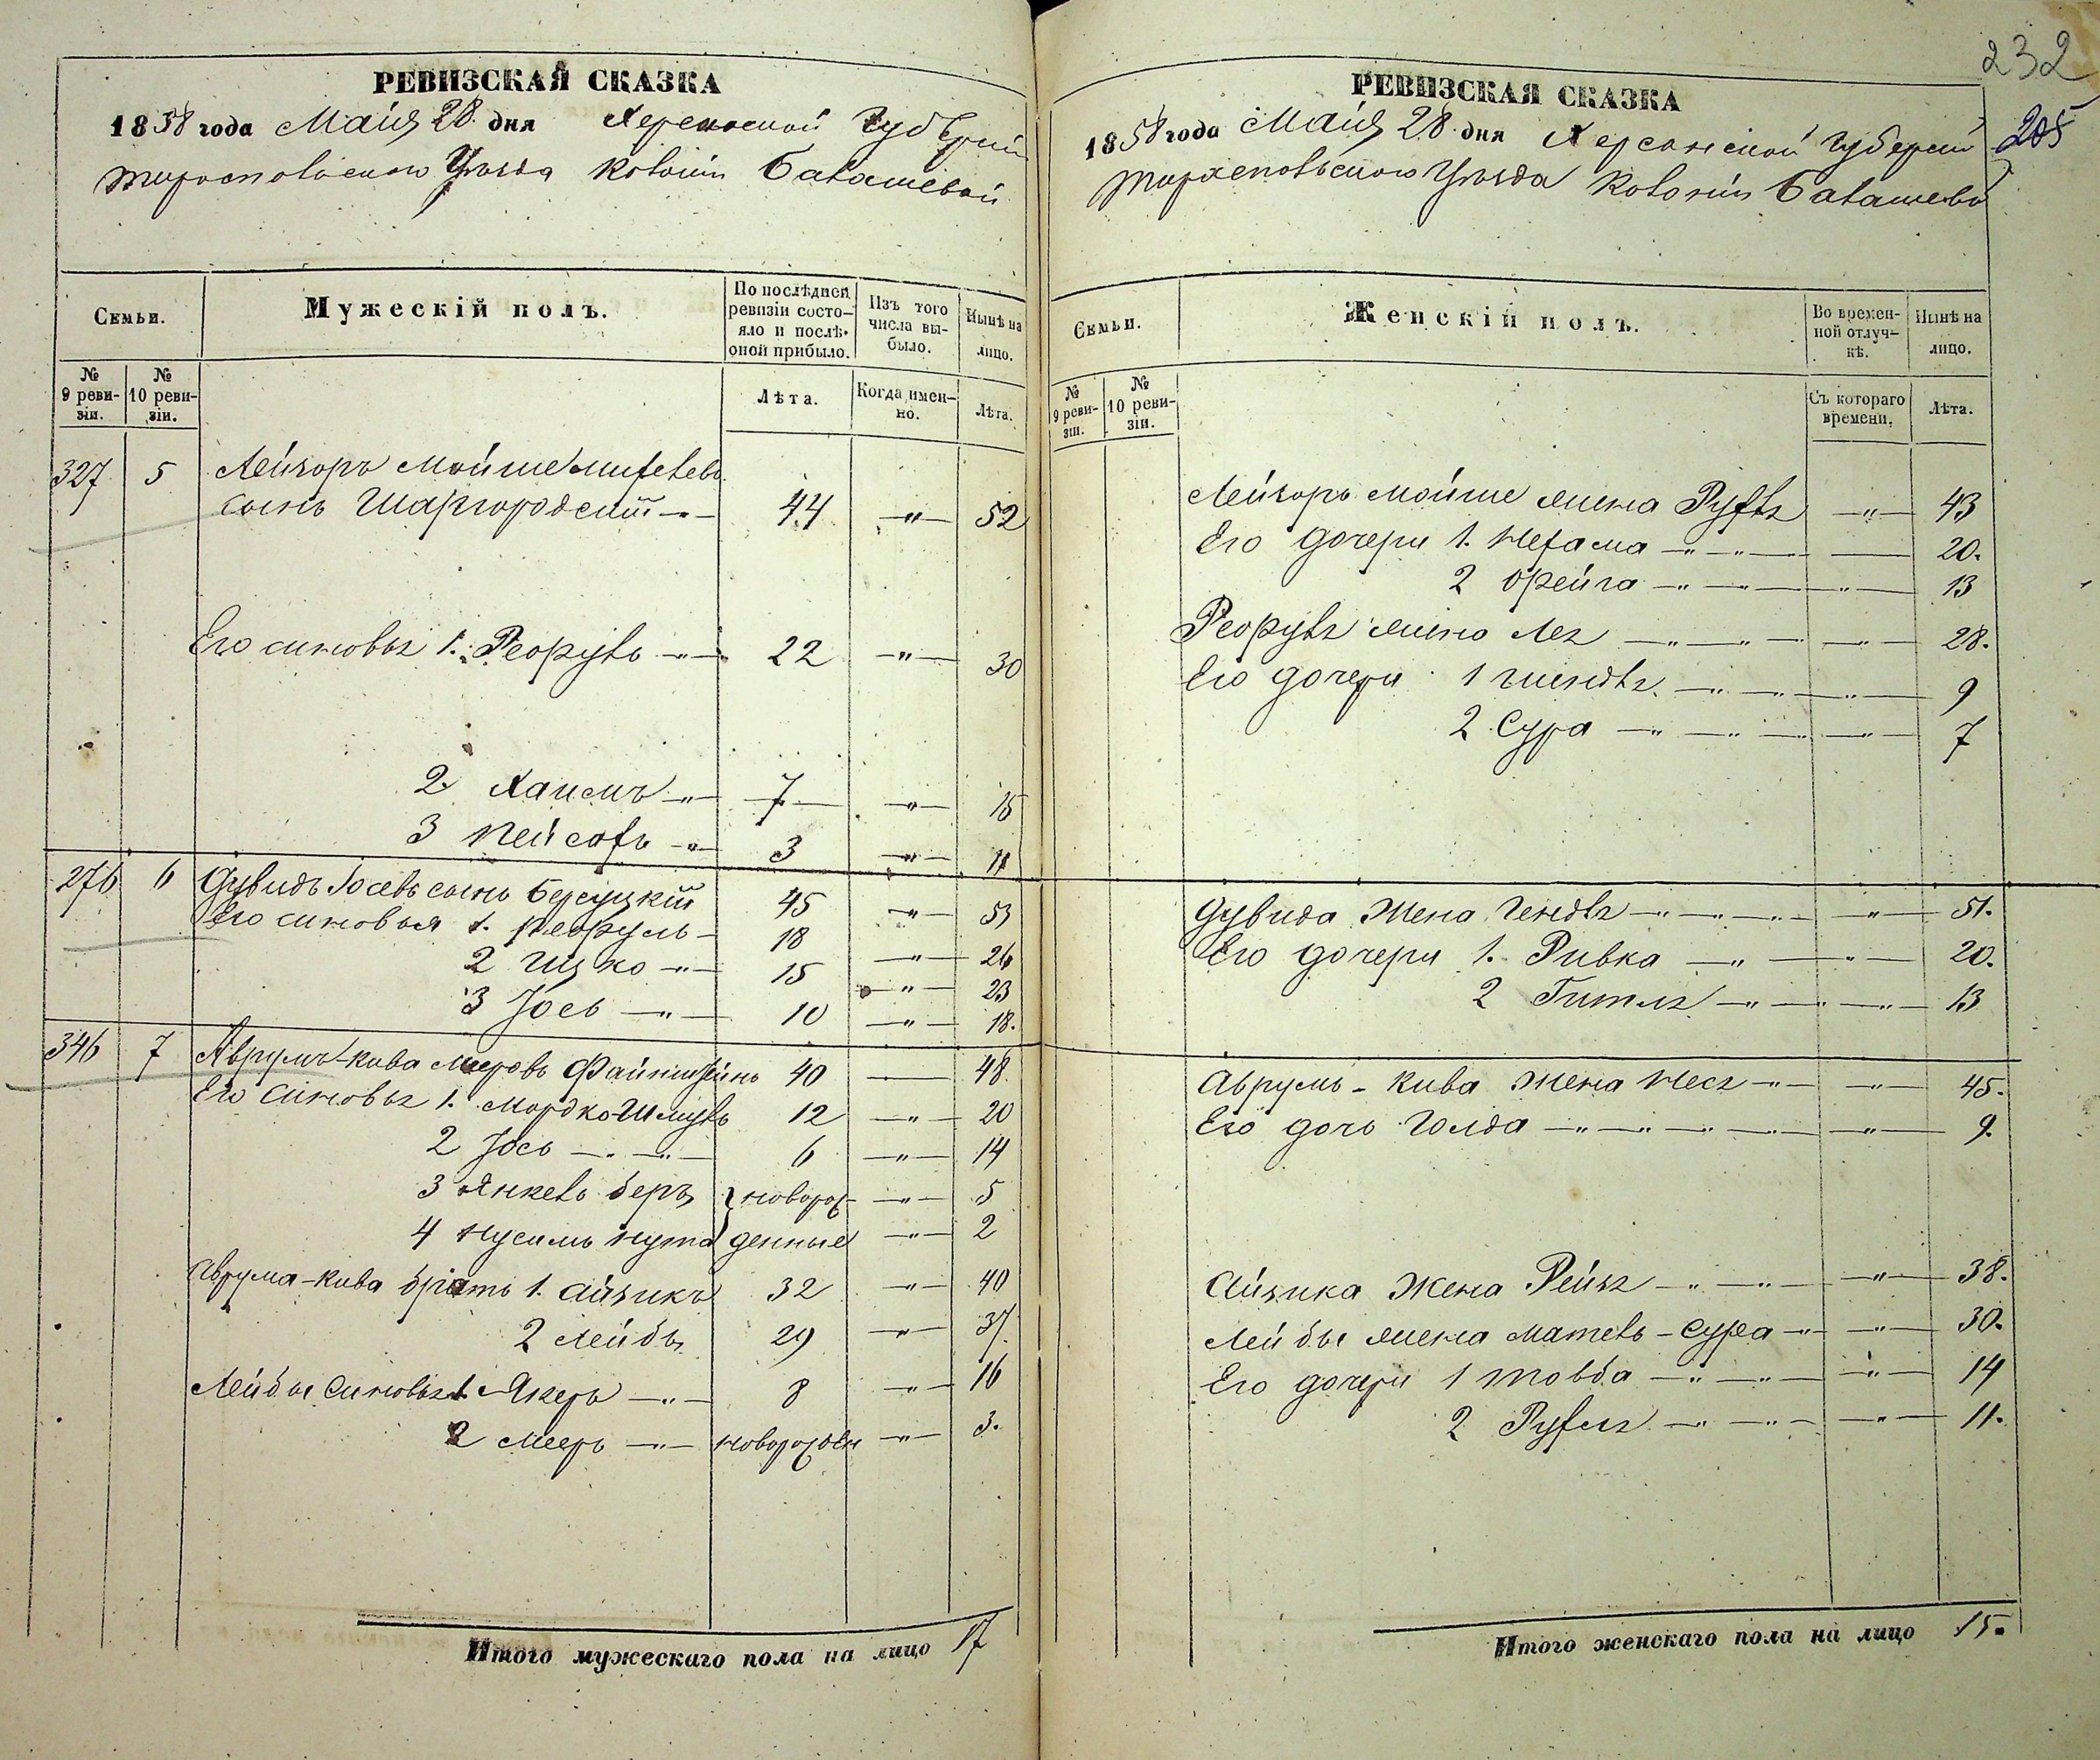 РЕВИЗСКАЯ СКАЗКА
1858 года Маия 28 дня Херсонской Губернии
Тираспольскаго Уѣзда Колоніи Балашевой
Семьи.
Мужескій полъ.
По послѣдней ревизіи состо-
яло и послѣ
оной прибыло.
Изъ того числа вы-
было.
Нынѣ на
лицо.
№ 9 реви-
зіи.
№ 10 реви-
зіи.
Лѣта.
Когда имен-
но.
Лѣта.
327 5 Лейзоръ Мойше
сынъ Шаргородскій 44 " 52
Его сыновья 1. 22 " 30
2. Хаимъ " 7 " 15
3 Пейсахъ " 3 " 11
276 6 Дувидъ Іосевъ сынъ Берсуцкій 45 " 53
Его сыновья 1. 18 " 26
2 Ицко " 15 " 23
3 Іось " 10 " 18.
346 7 Аврумъ-Кива Мееровъ Файнштейнъ 40 48
Его сыновья 1. Мордко-Шмуль 12 " 20
2 Іось " 6 " 14
3 Янкель Беръ } новорож- " 5
4 Нусимъ Нута денные " 2
Аврума-Кива братъ 1. Айзикъ 32 " 40
2 Лейба 29 " 37
Лейбы сыновья 1. Якеръ " 8 " 16
2 Мееръ " новорожден " 3.
Итого мужескаго пола на лицо 17
232
205
РЕВИЗСКАЯ СКАЗКА
1858 года Маия 28 дня Херсонской Губерніи
Тираспольскаго Уѣзда Колоніи Балашевой
Семьи.
Женскій полъ.
Во времен-
ной отлуч-
кѣ.
Нынѣ на
лицо.
№ 9 реви-
зіи.
№ 10 реви-
зіи.
Съ котораго
времени.
Лѣта.
Лейзоръ Мойше жена Рухля " 43
Его дочери 1. Нехама " 20.
2 Фрейга " 13
жена Лея " 28.
Его дочери 1 Гинделя " 9
2 Сура " 7
Дувида жена Гендля " 51.
Его дочери 1. Ривка " 20.
2 Гитля " 13
Аврумъ-Кива жена Неся " 45.
Его дочь Голда " 9.
Айзика жена Рейзя " 38.
Лейбы жена Матель-Сура " 30.
Его дочери 1 Товба " 14
2 Рухля " 11.
Итого женскаго пола на лицо 15.